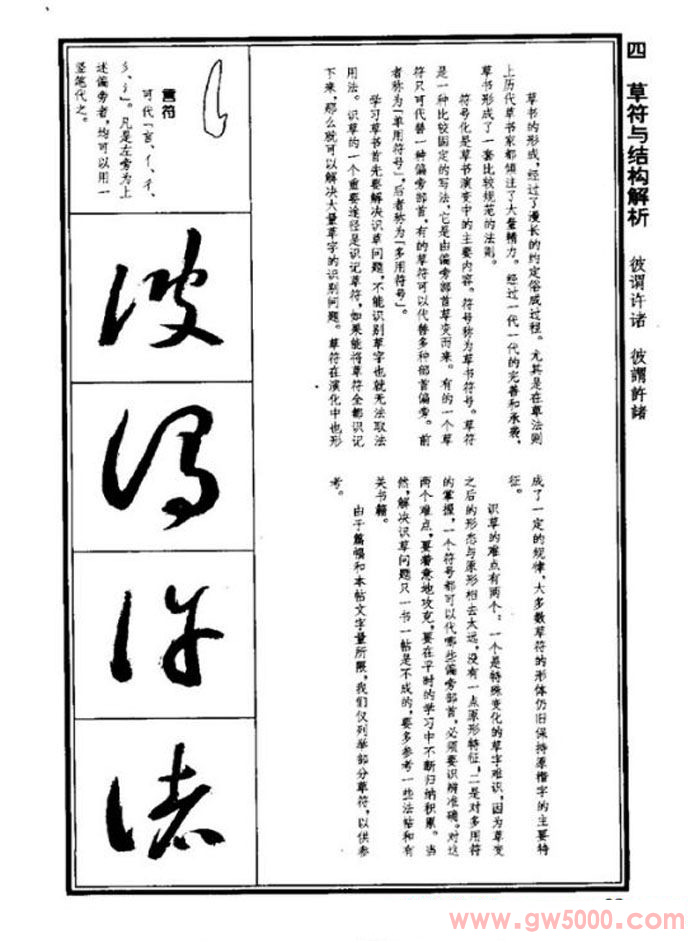 四 草符与结构解析 彼谓许诸 彼謂許諸
草书的形成，经过了漫长的约定俗成过程。尤其是在草法则
上历代草书家都倾注了大量精力。经过一代一代的完善和承袭，
草书形成了一套比较规范的法则。
符号化是草书演变中的主要内容。符号称为草书符号。草符
是一种比较固定的写法，它是由偏旁部首草变而来。有的一个草
符只可代替一种偏旁部首，有的草符可以代替多种部首偏旁。前
者称为「单用符号」，后者称为「多用符号」。
学习草书首先要解决识草问题，不能识别草字也就无法取法
用法。识草的一个重要途径是识记草符，如果能将草符全都识记
下来，那么就可以解决大量草字的识别问题。草符在演化中也形
成了一定的规律，大多数草符的形体仍旧保持原楷字的主要特
征。
识草的难点有两个：一个是特殊变化的草字难识，因为草变
之后的形态与原形相去太远，没有一点原形特征，二是对多用符
的掌握，一个符号都可以代哪些偏旁部首，必须要识辨准确。对这
两个难点，要着意地攻克，要在平时的学习中不断归纳积累。当
然，解决识草问题只一书一帖是不成的，要多参考一些法帖和有
关书籍。
由于篇幅和本帖文字量所限，我们仅列举部分草符，以供参
考。
言符
可代「言、亻、彳、
彡、氵」。凡是左旁为上
述偏旁者，均可以用一
竖笔代之。
彼
谓
许
诸
www.gw5000.com